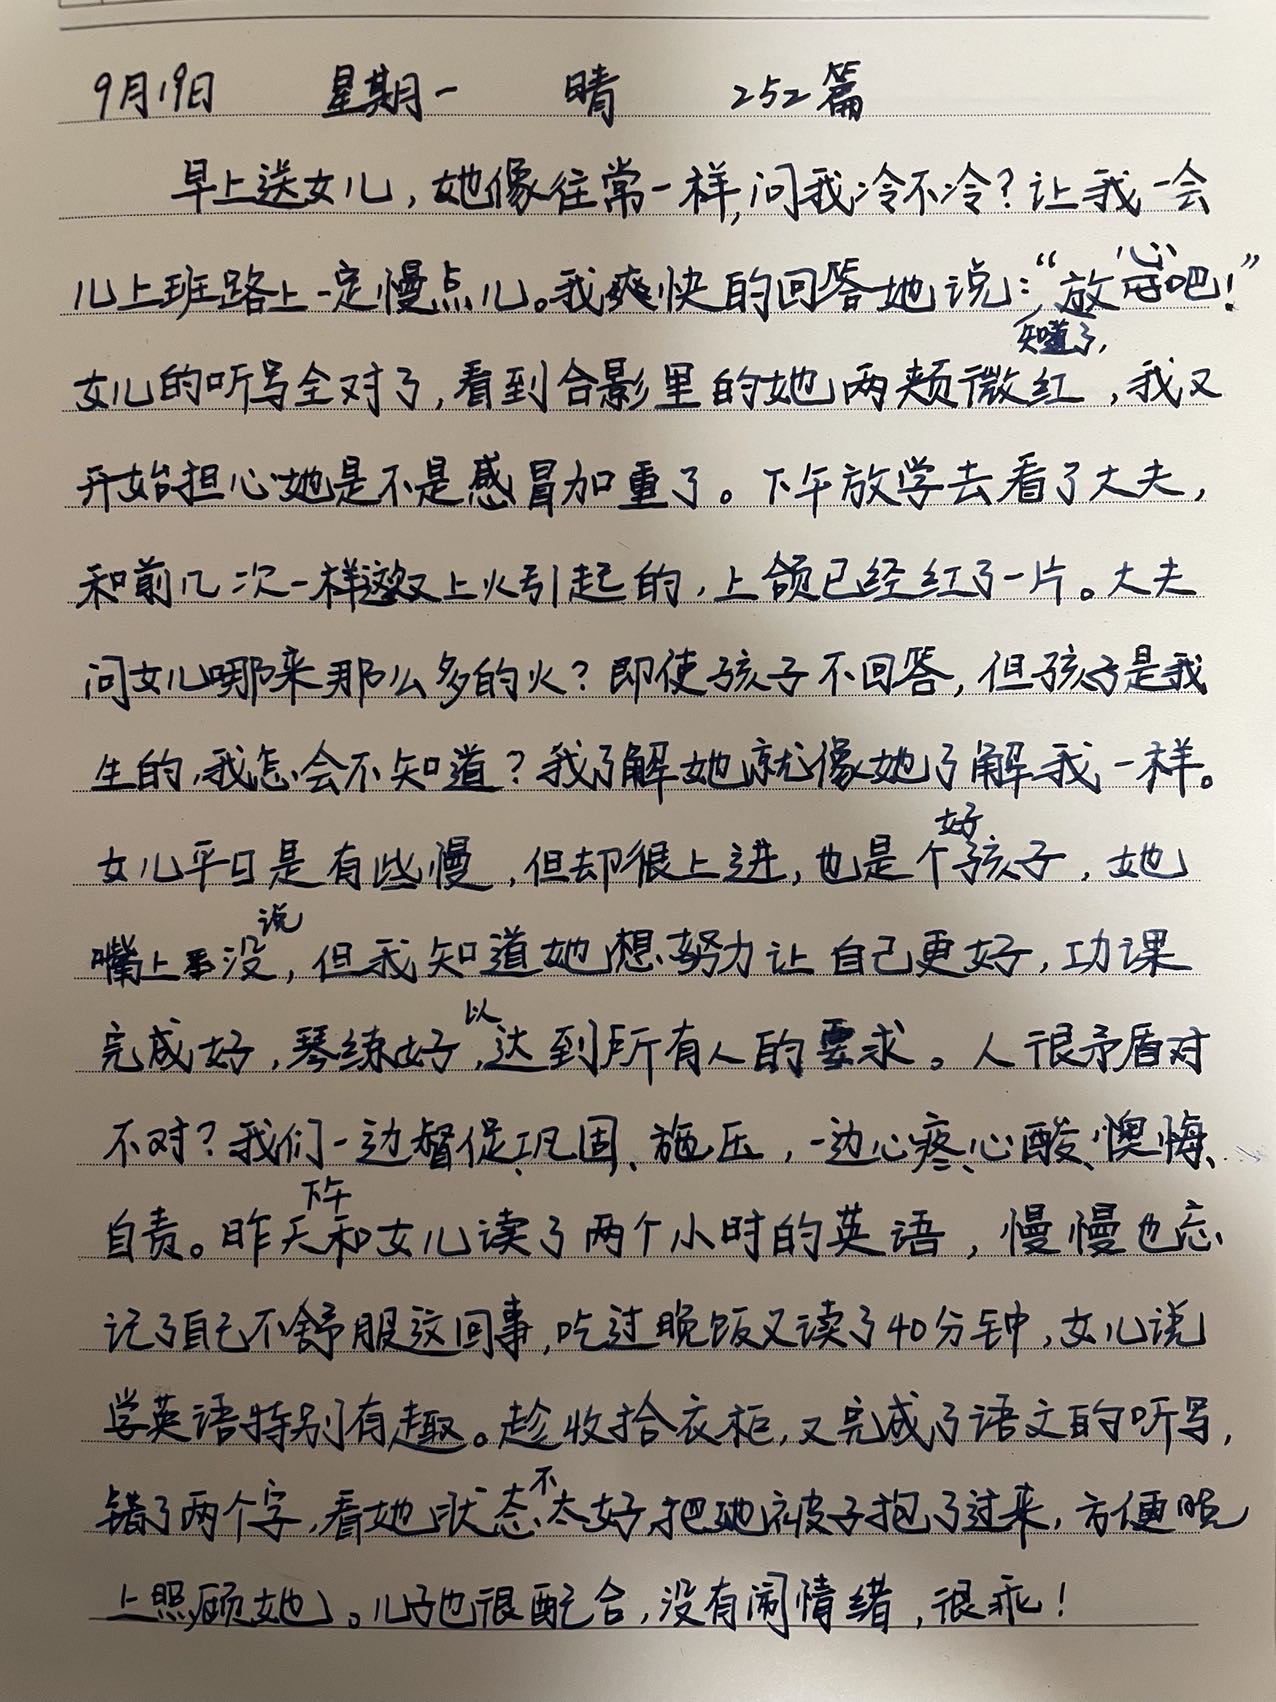 9月19日 星期一 晴 252篇
早上送女儿，她像往常一样，问我冷不冷？让我一会
儿上班路上一定慢点儿。我爽快的回答她说：“知道了，放心吧！”
女儿的听写全对了，看到合影里的她两颊微红，我又
开始担心她是不是感冒加重了。下午放学去看了大夫，
和前几次一样这次又上火引起的，上颌已经红了一片。大夫
问女儿哪来那么多的火？即使孩子不回答，但孩子是我
生的，我怎会不知道？我了解她就像她了解我一样。
女儿平日是有些慢，但却很上进，也是个好孩子，她
嘴上没说，但我知道她想努力让自己更好，功课
完成好，琴练好，以达到所有人的要求。人很矛盾对
不对？我们一边督促、巩固、施压，一边心疼、心酸、懊悔、
自责。昨天下午和女儿读了两个小时的英语，慢慢也忘
记了自己不舒服这回事，吃过晚饭又读了40分钟，女儿说
学英语特别有趣。趁收拾衣柜，又完成了语文的听写，
错了两个字，看她状态不太好，把她被子抱了过来，方便晚
上照顾她。儿子也很配合，没有闹情绪，很乖！